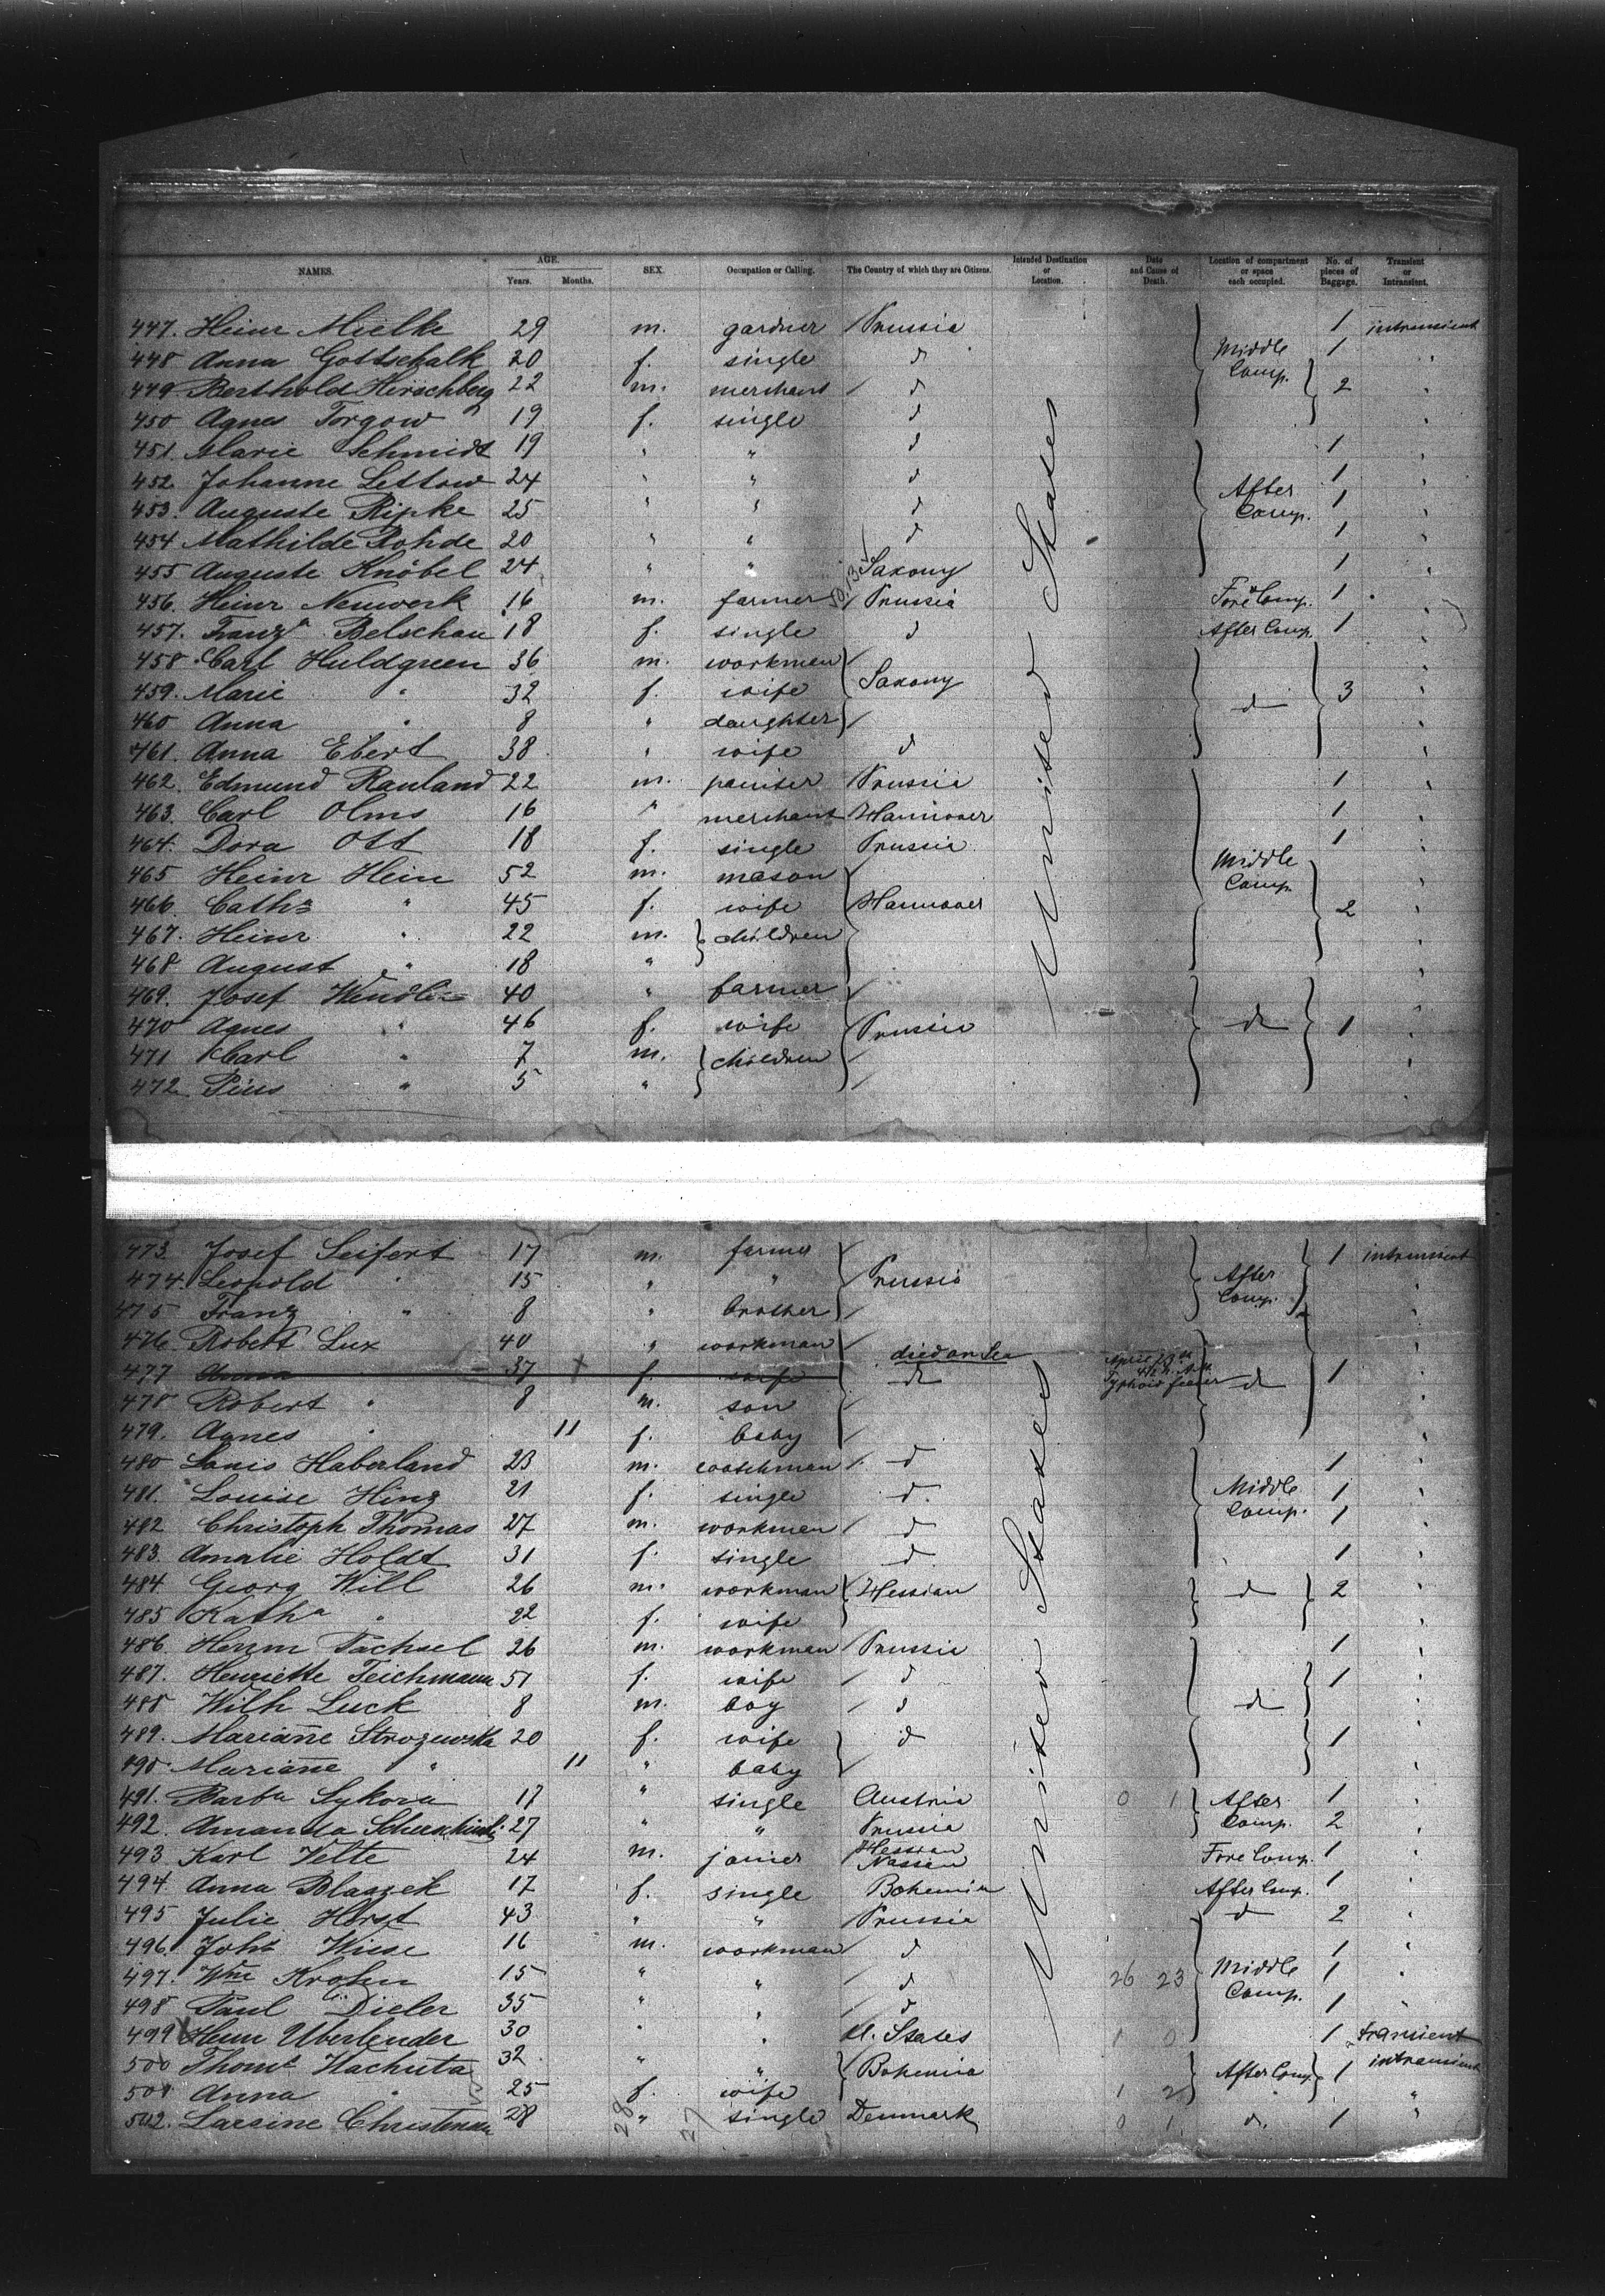 NAMES. AGE. Years. Months. SEX. Occupation or Calling. The Country of which they are Citizens. Intended Destination or Location. Date and Cause of Death. Location of compartment or space each occupied. No. of pieces of Baggage. Transient or Intransient.
447. Heinr Mielke 29 m. gardner / Prussia 1 intransient
448 Anna Gottschalk 20 f. single d Middle Comp. 1 "
449 Berthold Hirschberg 22 m. merchant / d 2 "
450 Agnes Torgow 19 f. single d "
451 Marie Schmidt 19 " " d 1 "
452. Johanne Lettow 24 " " d 1 "
453. Auguste Ripke 25 " " d After Comp. 1 "
454 Mathilde Rohde 20 " " d 1 "
455 Auguste Knöbel 24 " " Saxony 1 "
456. Heinr Neuwerk 16 m. farmer / Prussia Fore Comp. 1 "
457. Franz Belschau 18 f. single d After Comp. 1 "
458 Carl Huldgreen 36 m. workman / "
459. Marie " 32 f. wife Saxony d 3 "
460 Anna " 8 " daughter / "
461. Anna Ebert 38 " wife d "
462. Edmund Rauland 22 m. painter / Prussia 1 "
463. Carl Olms 16 " merchant / Hannover 1 "
464. Dora Ott 18 f. single Prussia 1 "
465 Heinr Hein 52 m. mason / Middle Comp. "
466. Catha " 45 f. wife Hannover 2 "
467. Heinr " 22 m. children "
468 August " 18 " "
469. Josef Wendler 40 " farmer / "
470 Agnes " 46 f. wife Prussia d 1 "
471 Carl " 7 m. children / "
472. Pius " 5 " / "
United States
473. Josef Seifert 17 m. farmer / 1 intransient
474. Leopold " 15 " " Prussia After Comp. "
475 Franz " 8 " brother / "
476. Robert Lux 40 " workman / died on Sea "
477 Anna 37 + f. wife d April 4½ h. A.M. Typhoid fever d 1 "
478 Robert " 8 m. son / "
479. Agnes " 11 f. baby / "
480 Louis Haberland 23 m. / d 1 "
481. Louise Hinz 21 f. single d. Middle Comp. 1 "
482 Christoph Thomas 27 m. workman / d 1 "
483. Amalie Holdt 31 f. single d 1 "
484. Georg Will 26 m. workman / Hessian d 2 "
485 Katha " 22 f. wife "
486. Herm Tachsel 26 m. workman / Prussia 1 "
487. Henriette Teichmann 51 f. wife / d 1 "
488 Wilh Luck 8 m. boy / d d "
489. Marianne Strozewska 20 f. wife d 1 "
490 Marianne " 11 " baby "
491. Barba Sykora 17 " single Austria 0 1 After Comp. 1 "
492. Amanda 27 " " Prussia 2 "
493 Karl Velte 24 m. joiner Hessian Nassau Fore Comp. 1 "
494. Anna Blaszek 17 f. single Bohemia After Comp. 1 "
495 Julie Horst 43 " " Prussia d 2 "
496. Johs Wiese 16 m. workman / d 1 "
497. Wm Krohn 15 " " / d 26 23 Middle Comp. 1 "
498 Paul Dieler 35 " " / d 1 "
499 Herm Uberlender 30 " " U. States 1 0 1 transient
500 Thoms Hachuta 32 " " / Bohemia After Comp. 1 intransient
501 Anna " 25 f. wife 1 2 "
502. Larsine Christensen 28 " single Denmark 0 1 d. 1 "
28 27
United States